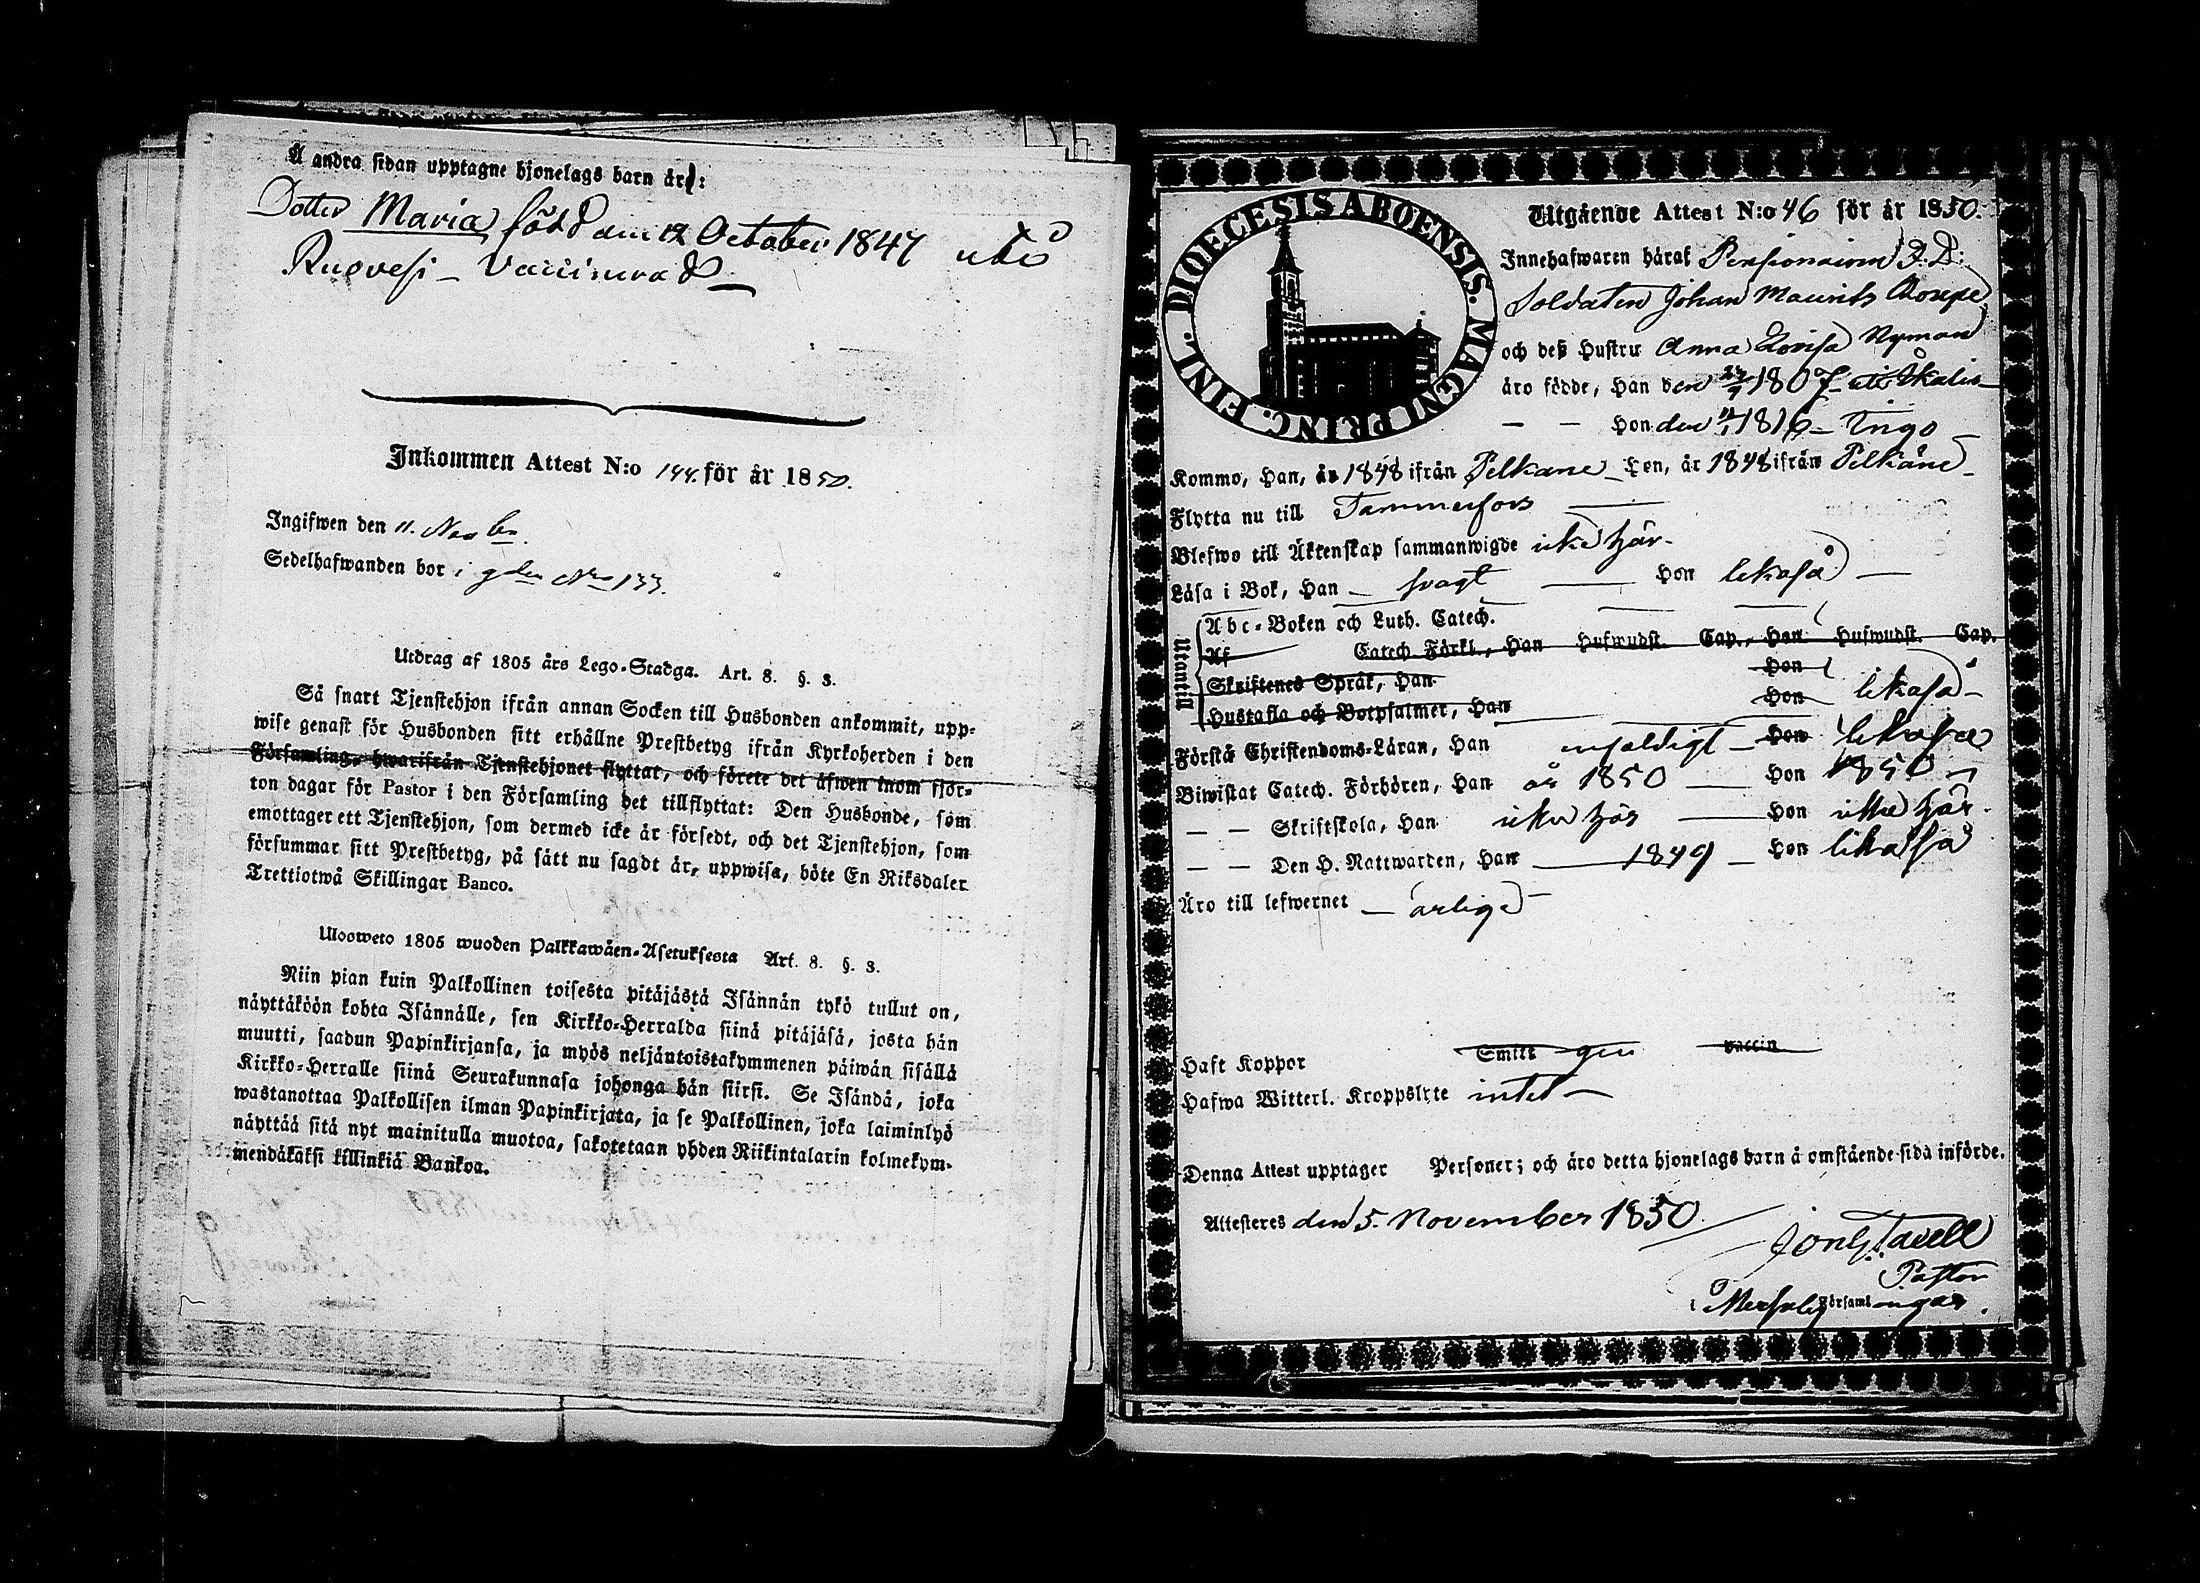 Å andra sidan upptagne hjonelags barn är:
Dotter Maria född den 12 October 1847 uti
Ruovesi – Vaccinerad
Inkommen Attest N:o 144. för år 1850.
Ingifwen den 11. Novbr
Sedelhafwanden bor i gden No 133.
Utdrag af 1805 års Lego-Stadga. Art. 8. §. 3.
Så snart Tjenstehjon ifrån annan Socken till Husbonden ankommit, upp-
wise genast för Husbonden sitt erhållne Prestbetyg ifrån Kyrkoherden i den
Församling, hwarifrån Tjenstehjonet flyttat, och förete det äfwen inom fjor-
ton dagar för Pastor i den Församling det tillflyttat: Den Husbonde, som
emottager ett Tjenstehjon, som dermed icke är försedt, och det Tjenstehjon, som
försummar sitt Prestbetyg, på sätt nu sagdt är, uppwisa, böte En Riksdaler
Trettiotwå Skillingar Banco.
Uloosweto 1805 wuoden Palkkawäen-Asetuksesta Art. 8. §. 3.
Niin pian kuin Palkollinen toisesta pitäjästä Isännän tykö tullut on,
näyttäköön kohta Isännälle, sen Kirkko-Herralda siinä pitäjäsä, josta hän
muutti, saadun Papinkirjansa, ja myös neljäntoistakymmenen päiwän sisällä
Kirkko-Herralle siinä Seurakunnasa johonga hän siirsi. Se Isändä, joka
wastanottaa Palkollisen ilman Papinkirjata, ja se Palkollinen, joka laiminlyö
näyttää sitä nyt mainitulla muotoa, sakotetaan yhden Riikintalarin kolmekym-
mendäkaksi killinkiä Bankoa.
DIOECESIS ABOENSIS. MAGNI PRINC. FINL.
Utgående Attest N:o 46 för år 1850.
Innehafwaren häraf Pensionairen F. D:
Soldaten Johan Maurits
och deß Hustru Anna Lovisa Nyman
äro födde, Han den 1807 uti Ikalis
— — Hon den 1816 – Tingo
Kommo, Han, år 1848 ifrån Pelkäne – Hon, år 1848 ifrån Pelkäne –
Flytta nu till Tammerfors
Blefwo till Äktenskap sammanwigde icke här.
Läsa i Bok, Han – svagt — Hon likaså —
Utantill
Abc-Boken och Luth. Catech.
Af Catech. Förkl., Han Hufwudst. Cap., Hon Hufwudst. Cap.
Skriftenes Språk, Han Hon
Hustafla och Botpsalmer, Han Hon likaså –
Förstå Christendoms-Läran, Han enfaldigt – Hon likaså
Biwistat Catech. Förhören, Han år 1850 — Hon 1850
— — Skriftskola, Han icke här — Hon icke här.
— — Den H. Nattwarden, Han — 1849 — Hon likaså
Äro till lefwernet — ärliga —
Haft Koppor Smitt gen vaccin
Hafwa Witterl. Kroppslyte intet —
Denna Attest upptager Personer; och äro detta hjonelags barn å omstående sida införde.
Attesteres den 5. November 1850.
Pastor
i Församl ingar.